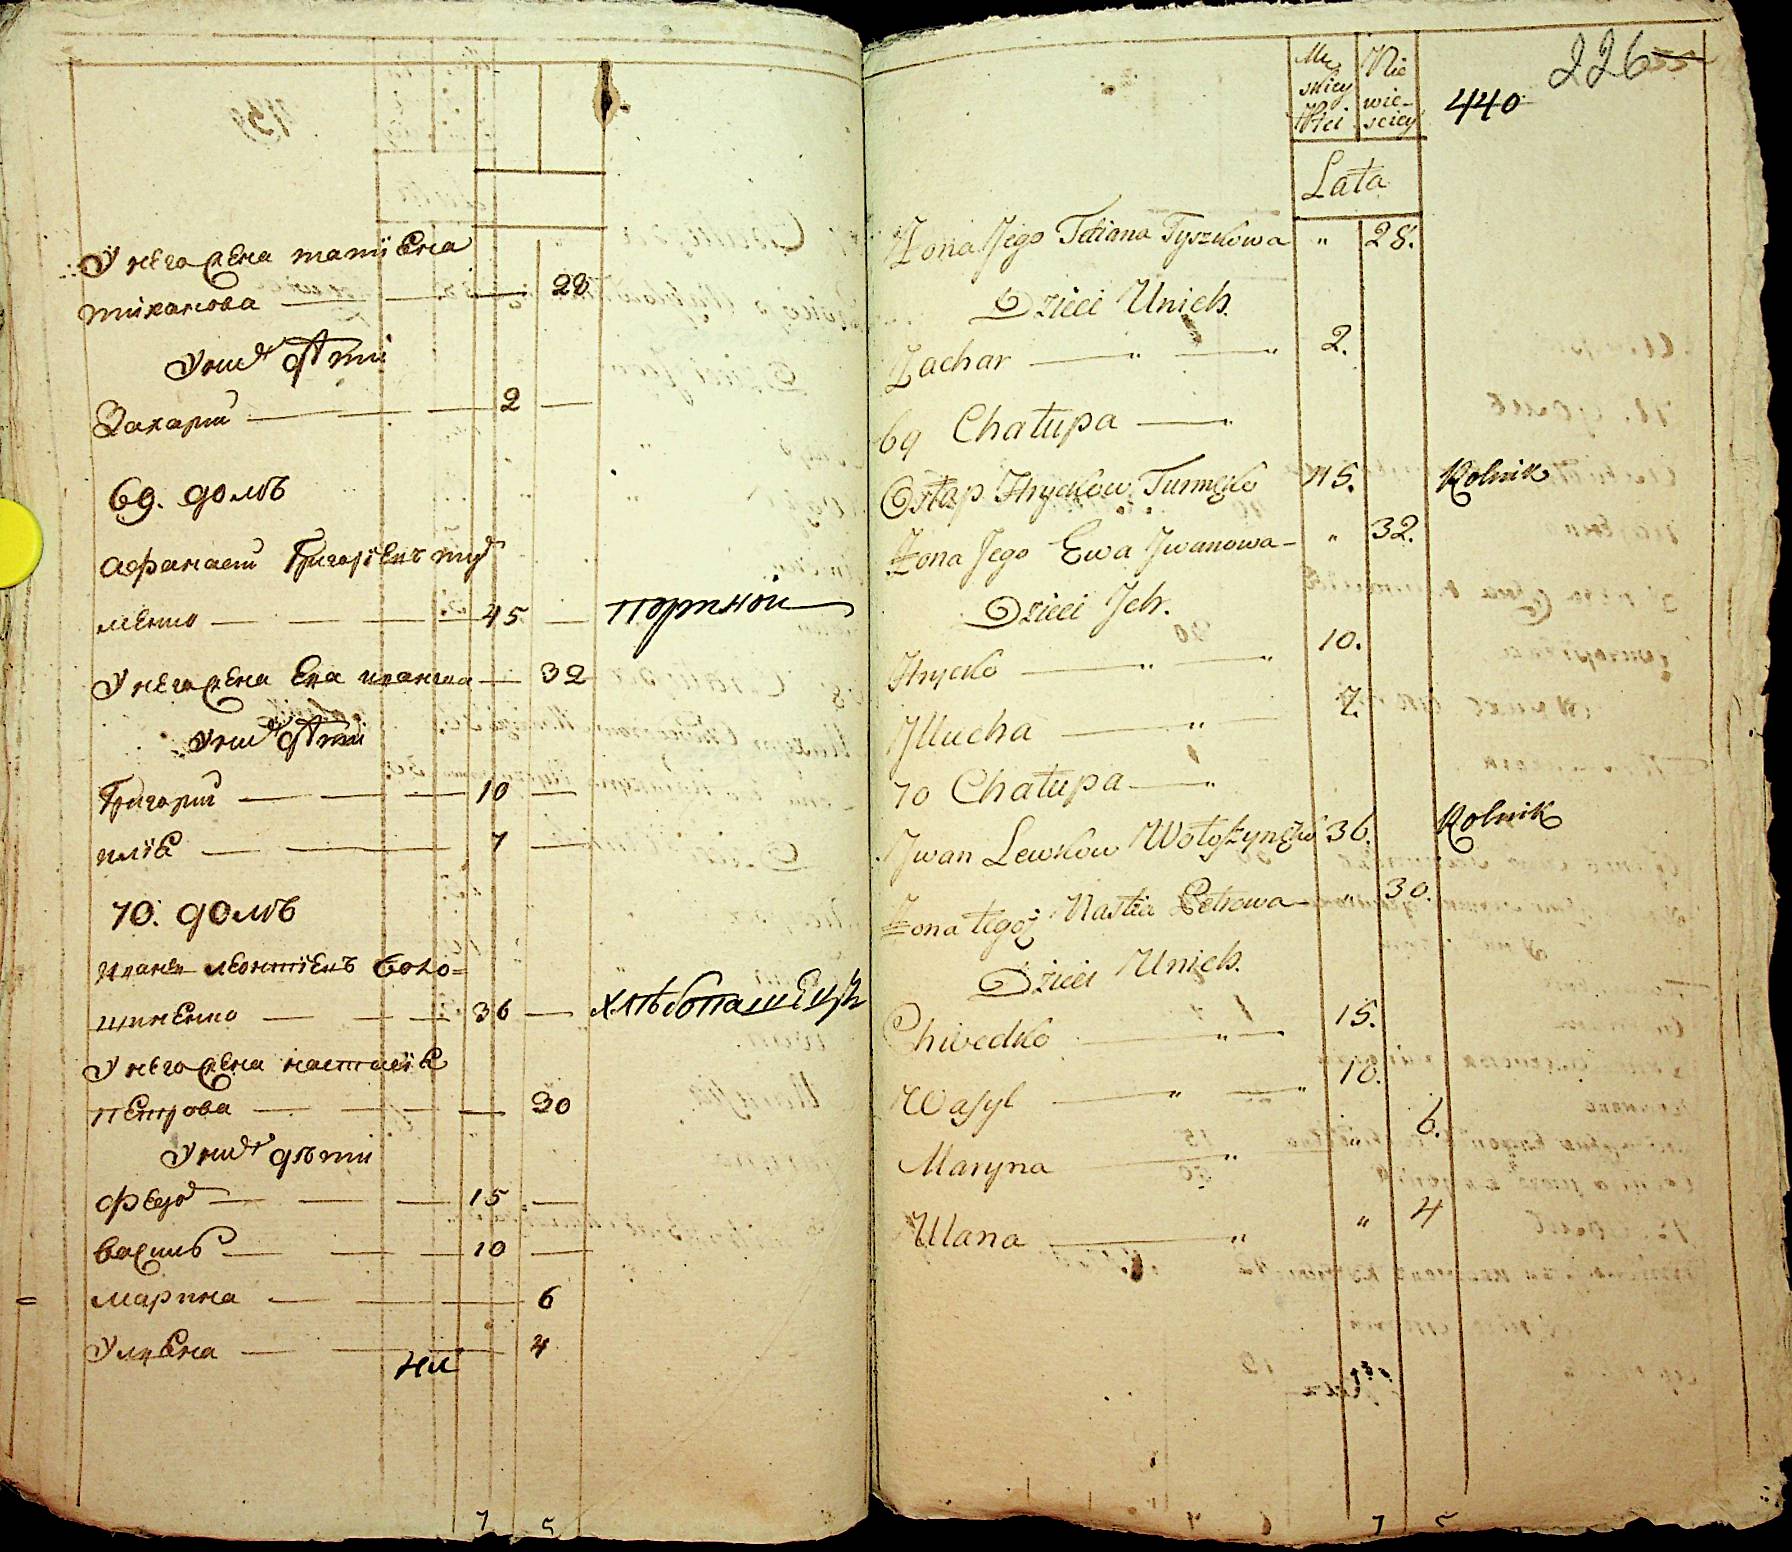 У него жена татиѧна
тиханова — — — 28
У нихъ дѣти
Захарий — — — 2 —
69. домъ
Афанасий Григориевъ тур
менко — — — 45 — портной
У него жена Ева иванова — 32
У нихъ дѣти
Григорий — — — 10 —
илїѧ — — 7 —
70. домъ
Иванъ леонтиевъ воло=
шиненко — — — 36 — хлѣбопашецъ
У него жена настасїѧ
петрова — — — 30
У нихъ дѣти
Федоръ — — — 15 —
василь — — — 10 —
марина — — — 6
Улиѧна — — — 4
7 5
226
Męskiey Płci
Niewieściey
440
Lata
Żona Jego Tetiana Tyszkowa " 28.
Dzieci Unich.
Zachar — " — " 2.
69 Chałupa —
Ostap Hryckow Turmenko 45. Rolnik
Żona Jego Ewa Jwanowa — " 32.
Dzieci Jch.
Hrycko — " — " 10.
Jllucha — " — 7.
70 Chałupa —
Jwan Lewkow Wołoszynenko 36. Rolnik
Żona tegoż Nastia Petrowa — " 30.
Dzieci Unich.
Chwedko — " — 15.
Wasyl — " — " 10.
Maryna — " " 6.
Ulana — " " 4
7 5